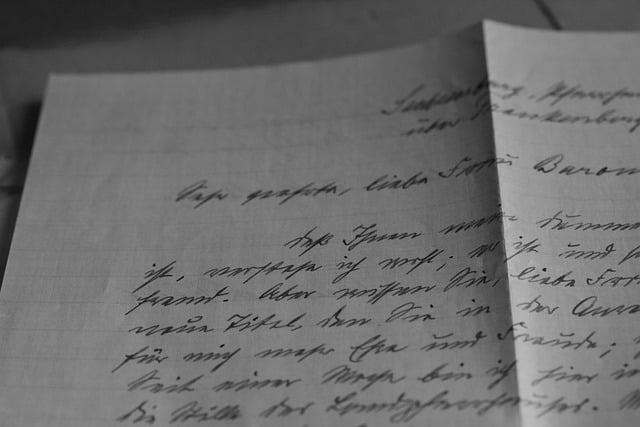 über Frankenberg
Sehr geehrte, liebe Frau Baron
daß Ihnen
ist, verstehe ich wohl; er ist und
fremd. Aber wissen Sie, liebe Frau
neue Titel, den Sie in der Anre
für mich mehr Ehre und Freude;
Seit einer Woche bin ich hier in
die Stille des Landpfarrhauses.